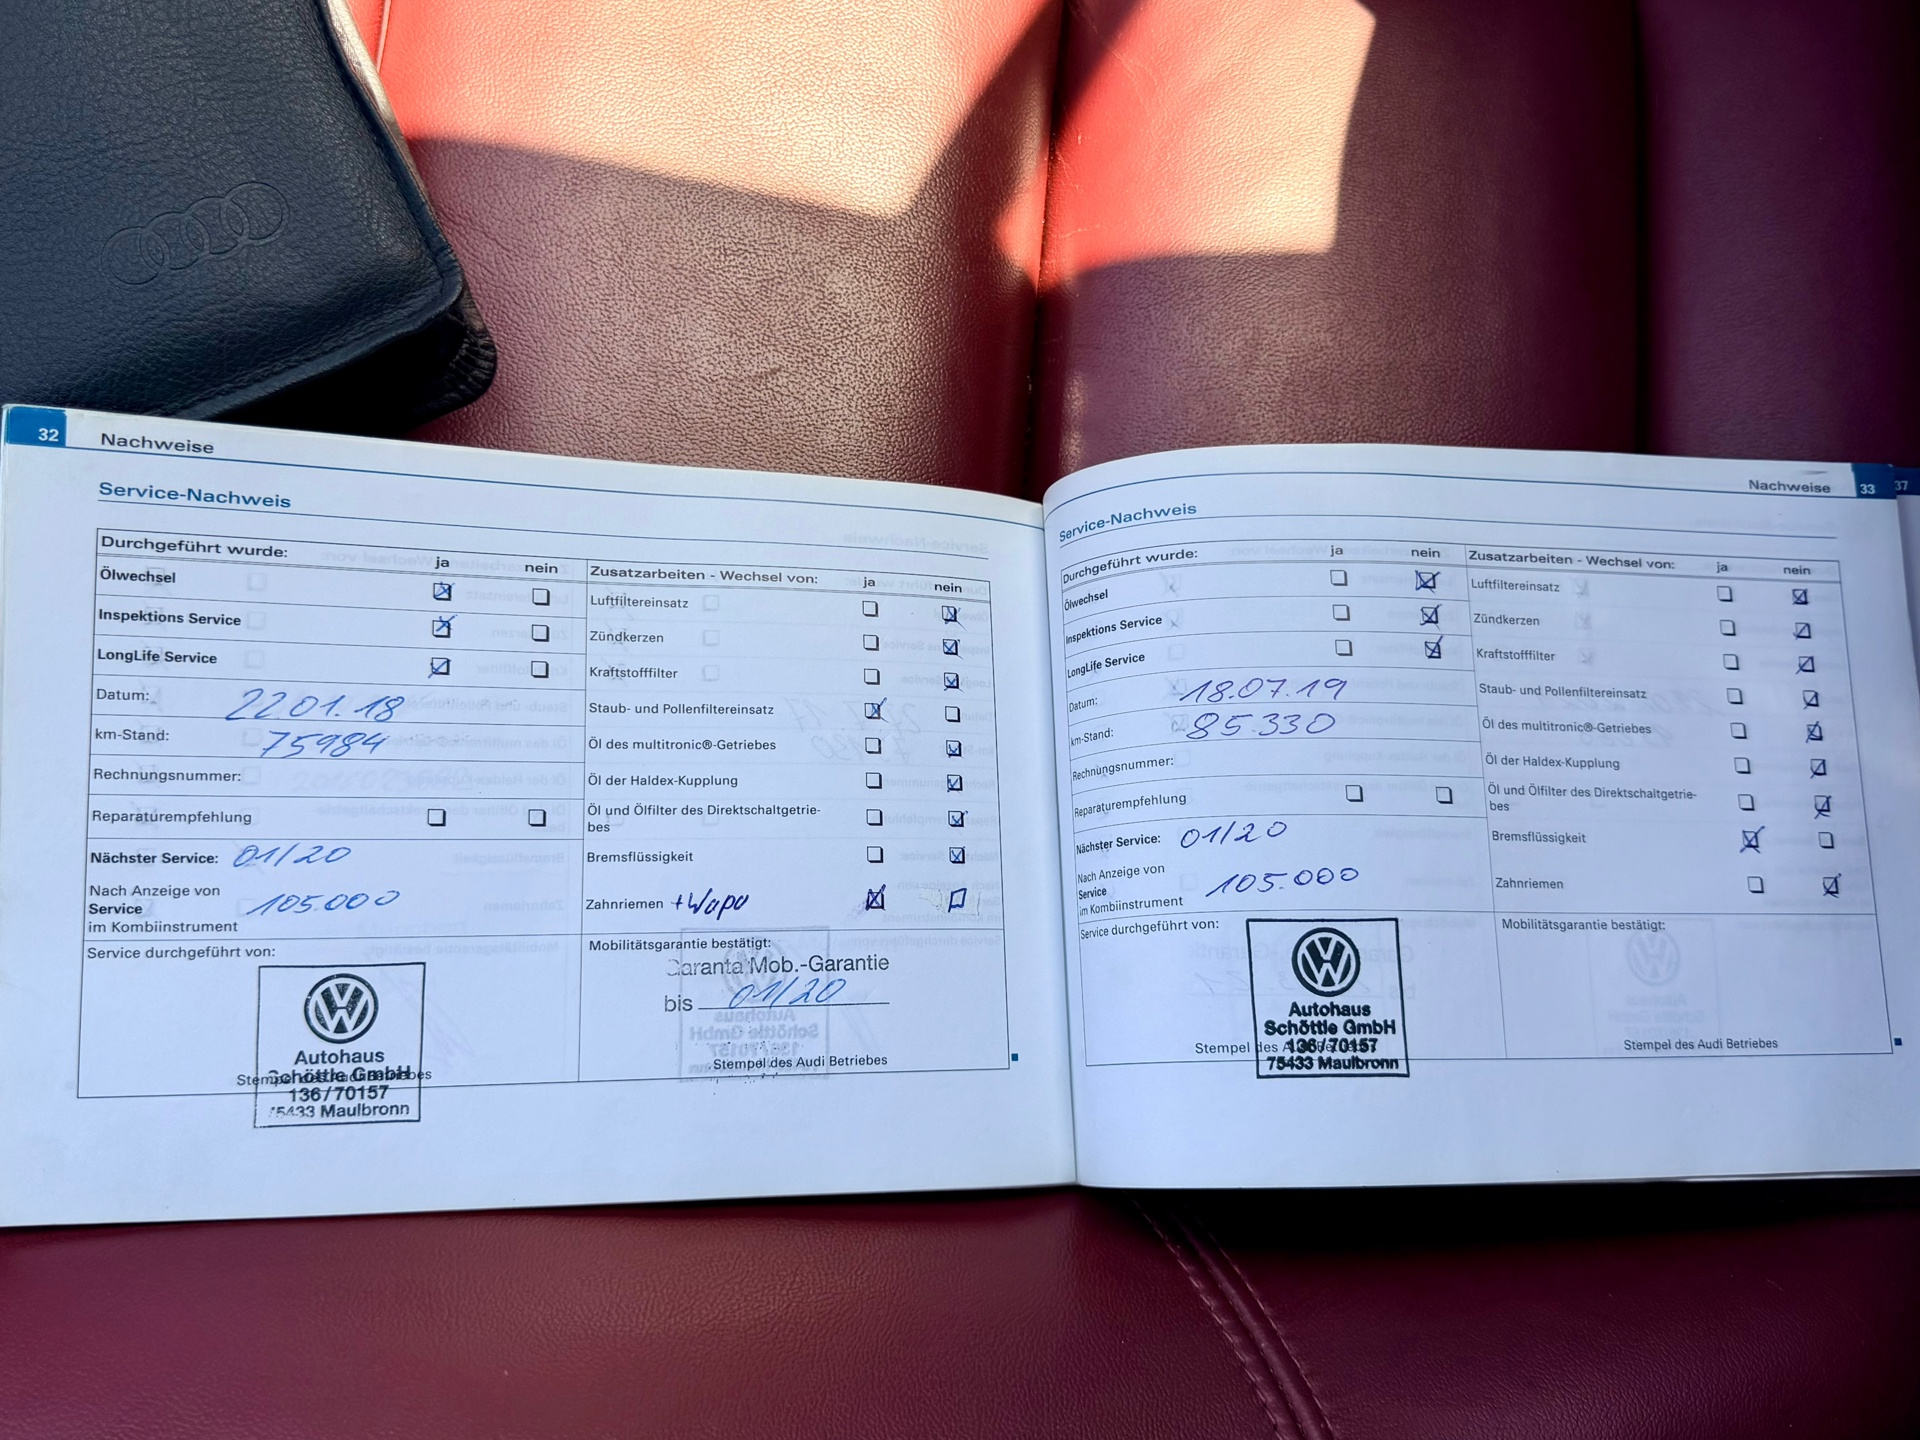 32
Nachweise
Service-Nachweis
Durchgeführt wurde:
ja
nein
Ölwechsel
Inspektions Service
LongLife Service
Datum: 22.01.18
km-Stand: 75984
Rechnungsnummer:
Reparaturempfehlung
Nächster Service: 01/20
Nach Anzeige von
Service
im Kombiinstrument
105.000
Service durchgeführt von:
Autohaus
Schöttle GmbH
136/70157
75433 Maulbronn
Stempel des Audi Betriebes
Zusatzarbeiten - Wechsel von:
ja
nein
Luftfiltereinsatz
Zündkerzen
Kraftstofffilter
Staub- und Pollenfiltereinsatz
Öl des multitronic®-Getriebes
Öl der Haldex-Kupplung
Öl und Ölfilter des Direktschaltgetrie-
bes
Bremsflüssigkeit
Zahnriemen + Wapu
Mobilitätsgarantie bestätigt:
Garanta Mob.-Garantie
bis 01/20
Stempel des Audi Betriebes
Nachweise
33
37
Service-Nachweis
Durchgeführt wurde:
ja
nein
Ölwechsel
Inspektions Service
LongLife Service
Datum: 18.07.19
km-Stand: 85.330
Rechnungsnummer:
Reparaturempfehlung
Nächster Service: 01/20
Nach Anzeige von
Service
im Kombiinstrument
105.000
Service durchgeführt von:
Autohaus
Schöttle GmbH
136/70157
75433 Maulbronn
Stempel des Audi Betriebes
Zusatzarbeiten - Wechsel von:
ja
nein
Luftfiltereinsatz
Zündkerzen
Kraftstofffilter
Staub- und Pollenfiltereinsatz
Öl des multitronic®-Getriebes
Öl der Haldex-Kupplung
Öl und Ölfilter des Direktschaltgetrie-
bes
Bremsflüssigkeit
Zahnriemen
Mobilitätsgarantie bestätigt:
Stempel des Audi Betriebes